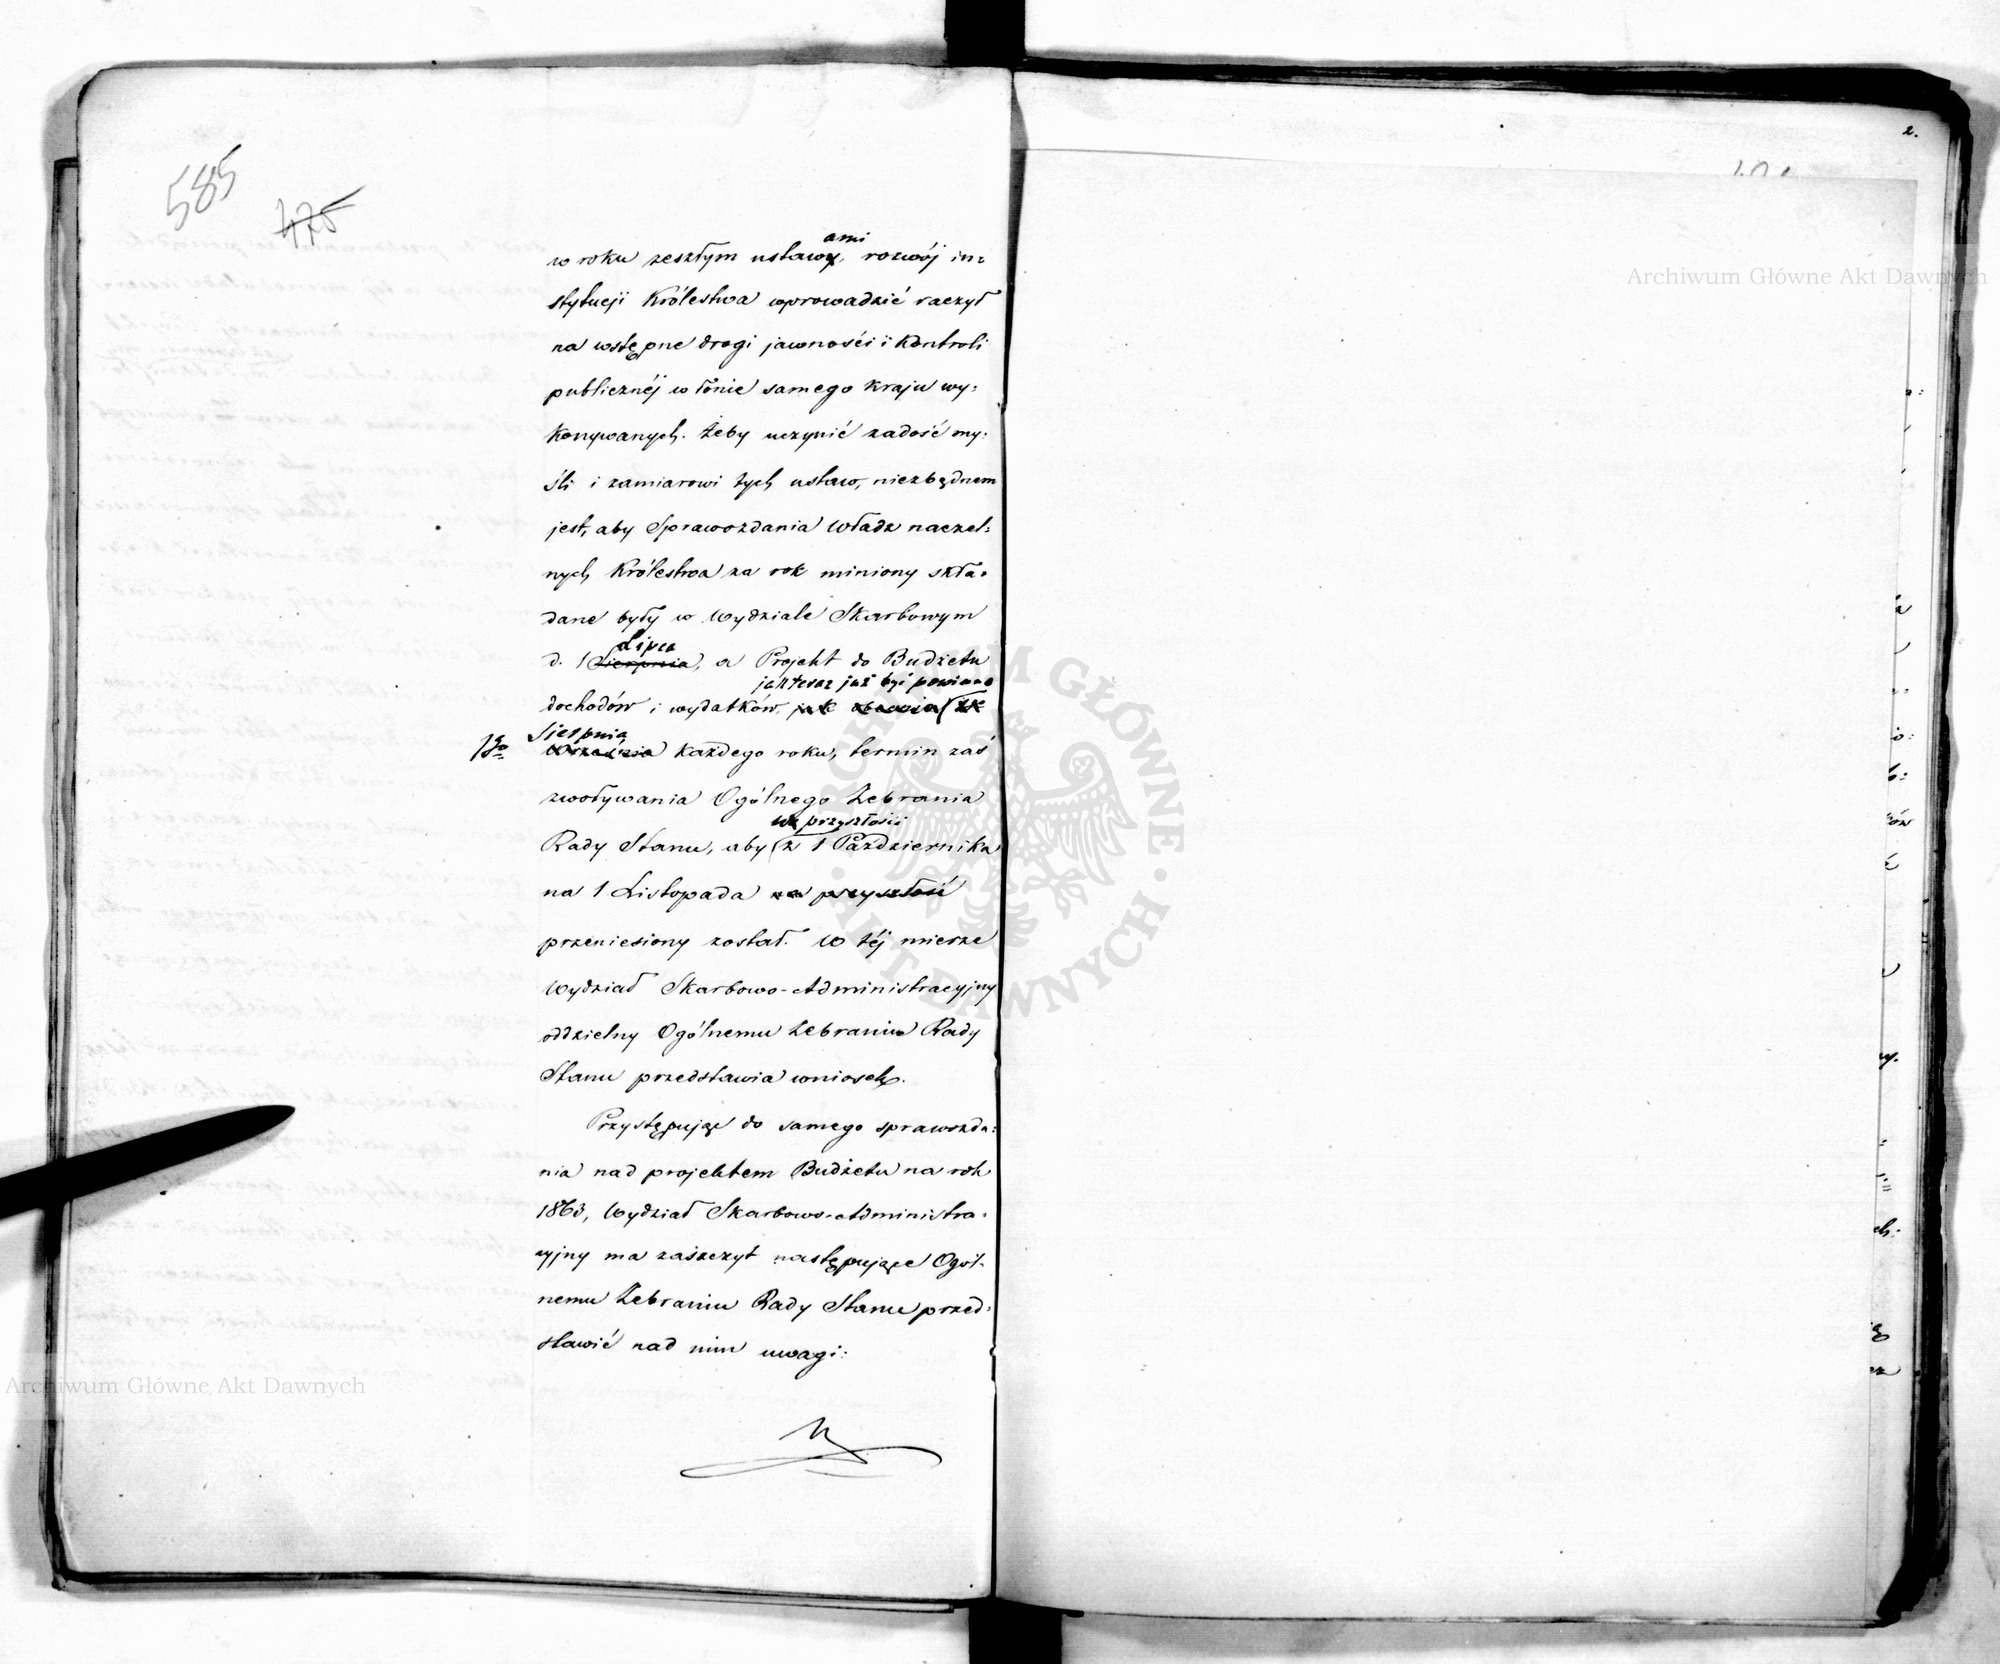 585
475
w roku zeszłym ustawami, rozwój in=
stytucji Królestwa wprowadzić raczył
na wstępne drogi jawności i Kontroli
publicznéj w łonie samego Kraju wy=
konywanych. Żeby uczynić zadość my=
śli i zamiarowi tych ustaw, niezbędnem
jest, aby Sprawozdania Władz naczel=
nych Królestwa za rok miniony skła=
dane były w Wydziale Skarbowym
Lipca
d. 1 Sierpnia, a Projekt do Budżetu
jak teraz już być powinno
dochodów i wydatków, jak
Sierpnia
1go Września każdego roku, termin zaś
zwoływania Ogólnego Zebrania
w przyszłości
Rady Stanu, aby z 1 Października
na 1 Listopada na przyszłość
przeniesiony został. W téj mierze
Wydział Skarbowo-Administracyjny
oddzielny Ogólnemu Zebraniu Rady
Stanu przedstawia wniosek.
Przystępując do samego sprawozda=
nia nad projektem Budżetu na rok
1863, Wydział Skarbowo-Administra=
cyjny ma zaszczyt następujące Ogól=
nemu Zebraniu Rady Stanu przed=
stawić nad nim uwagi:
2.
Archiwum Główne Akt Dawnych
Archiwum Główne Akt Dawnych
ARCHIWUM GŁÓWNE · AKT DAWNYCH ·